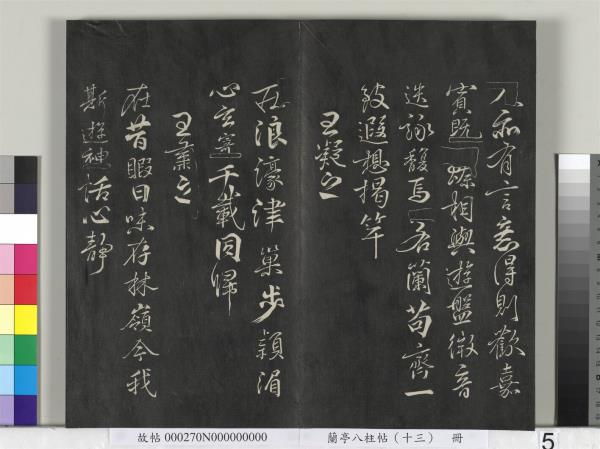 人亦有言意得則歡嘉
賓既臻相與遊盤微音
迭詠馥焉若蘭苟齊一
致遐想揭竿
王凝之
浪濠津巢步潁湄
心玄寄千載同歸
王肅之
在昔暇日味存林嶺今我
斯遊神恬心靜
故帖 000270N000000000 蘭亭八柱帖(十三) 冊
5